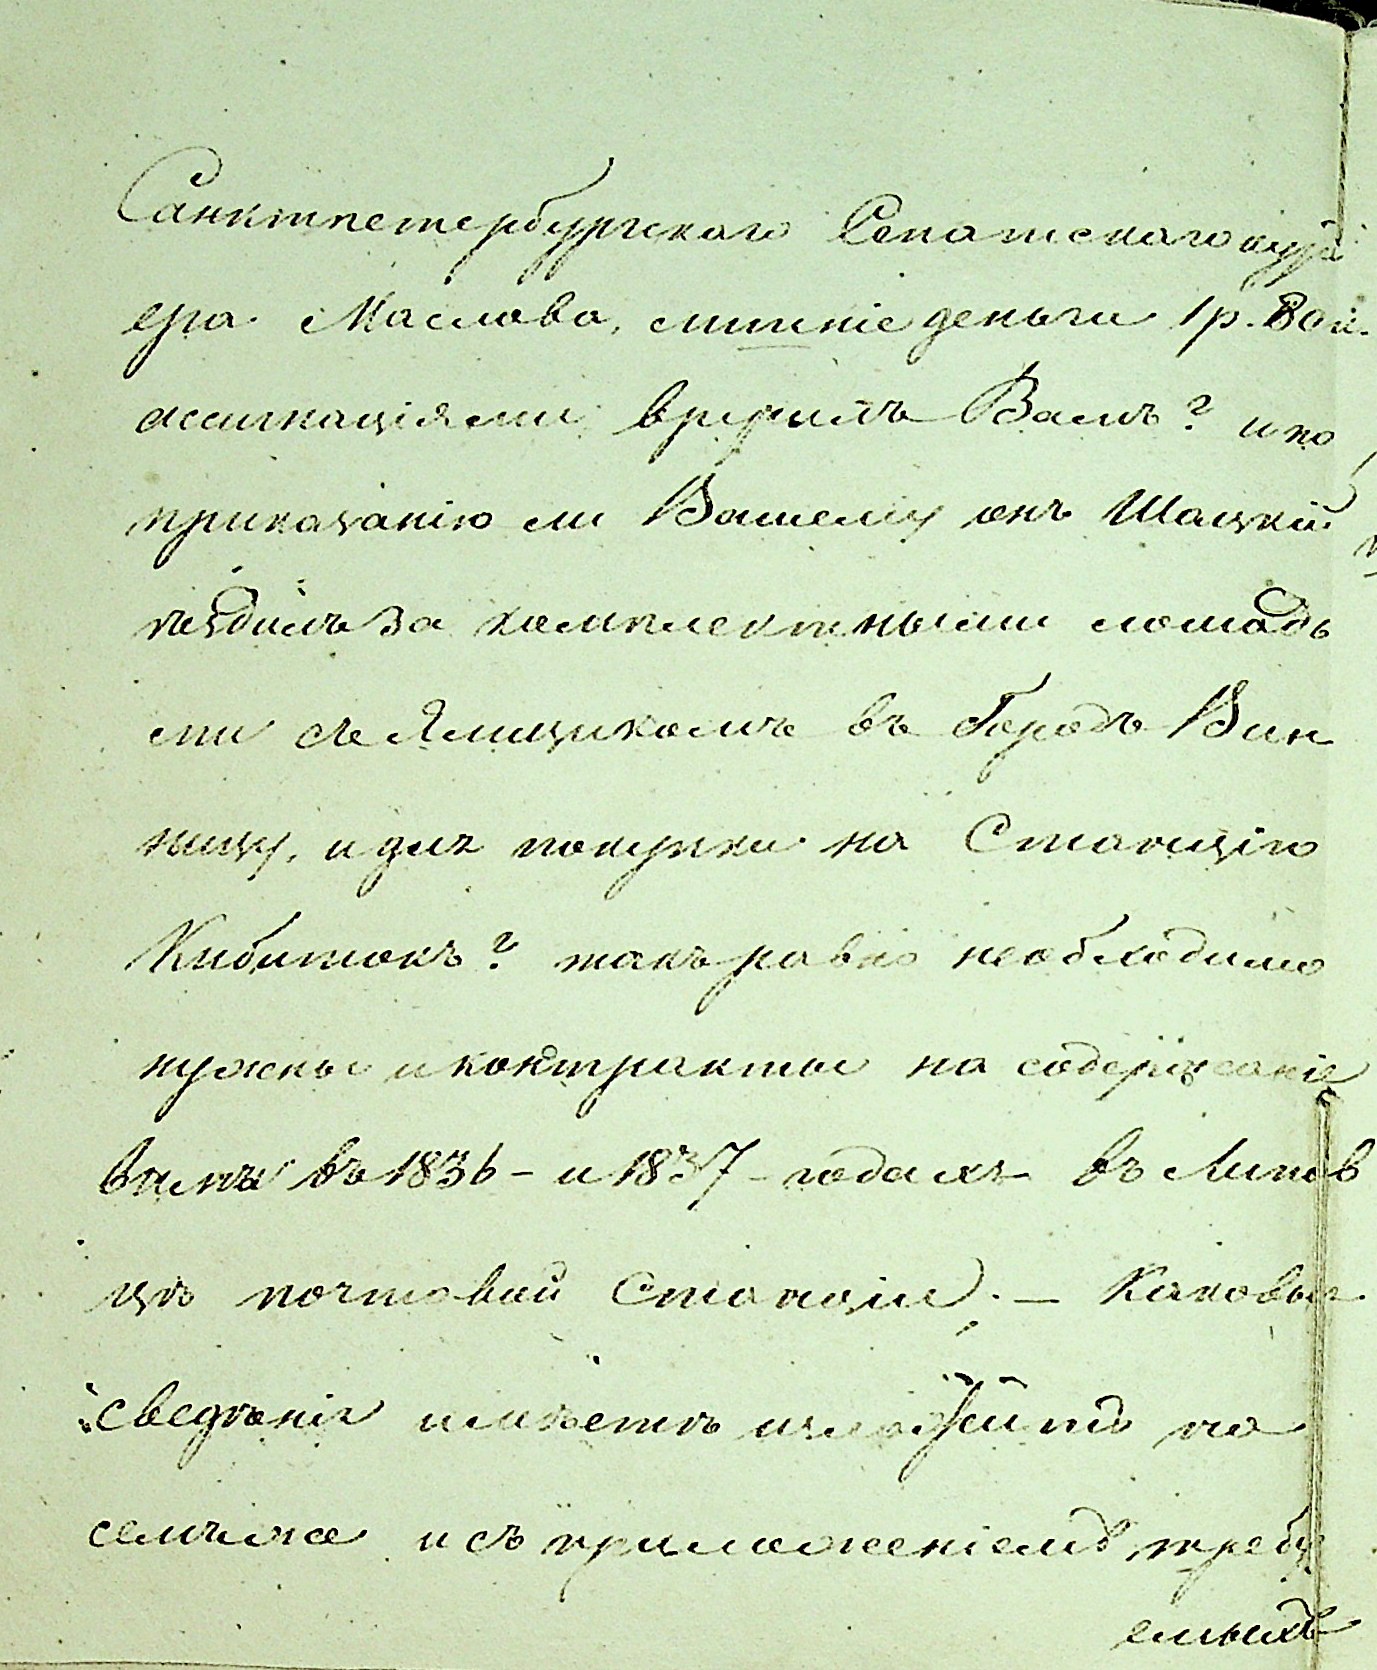 Санктпетербургскаго Сенатскаго курь
ера Маслова, лишніе деньги 1 р. 80 к.
ассигнаціями, вручилъ Вамъ? и по
приказанію ли Вашему онъ Шацкій
ѣздилъ за комплектными лошадь
ми съ Ямщикомъ въ Городъ Вин
ницу, и для покупки на Станцію
Кибитокъ? такъ равно необходимо
нужны и контракты на содержаніе
Вами въ 1836 - и 1837 - годахъ въ Липов
цѣ почтовой Станціи. — Каковые
свѣденія имѣетъ изложить на
семъ же и съ приложеніемъ требу
емыхъ